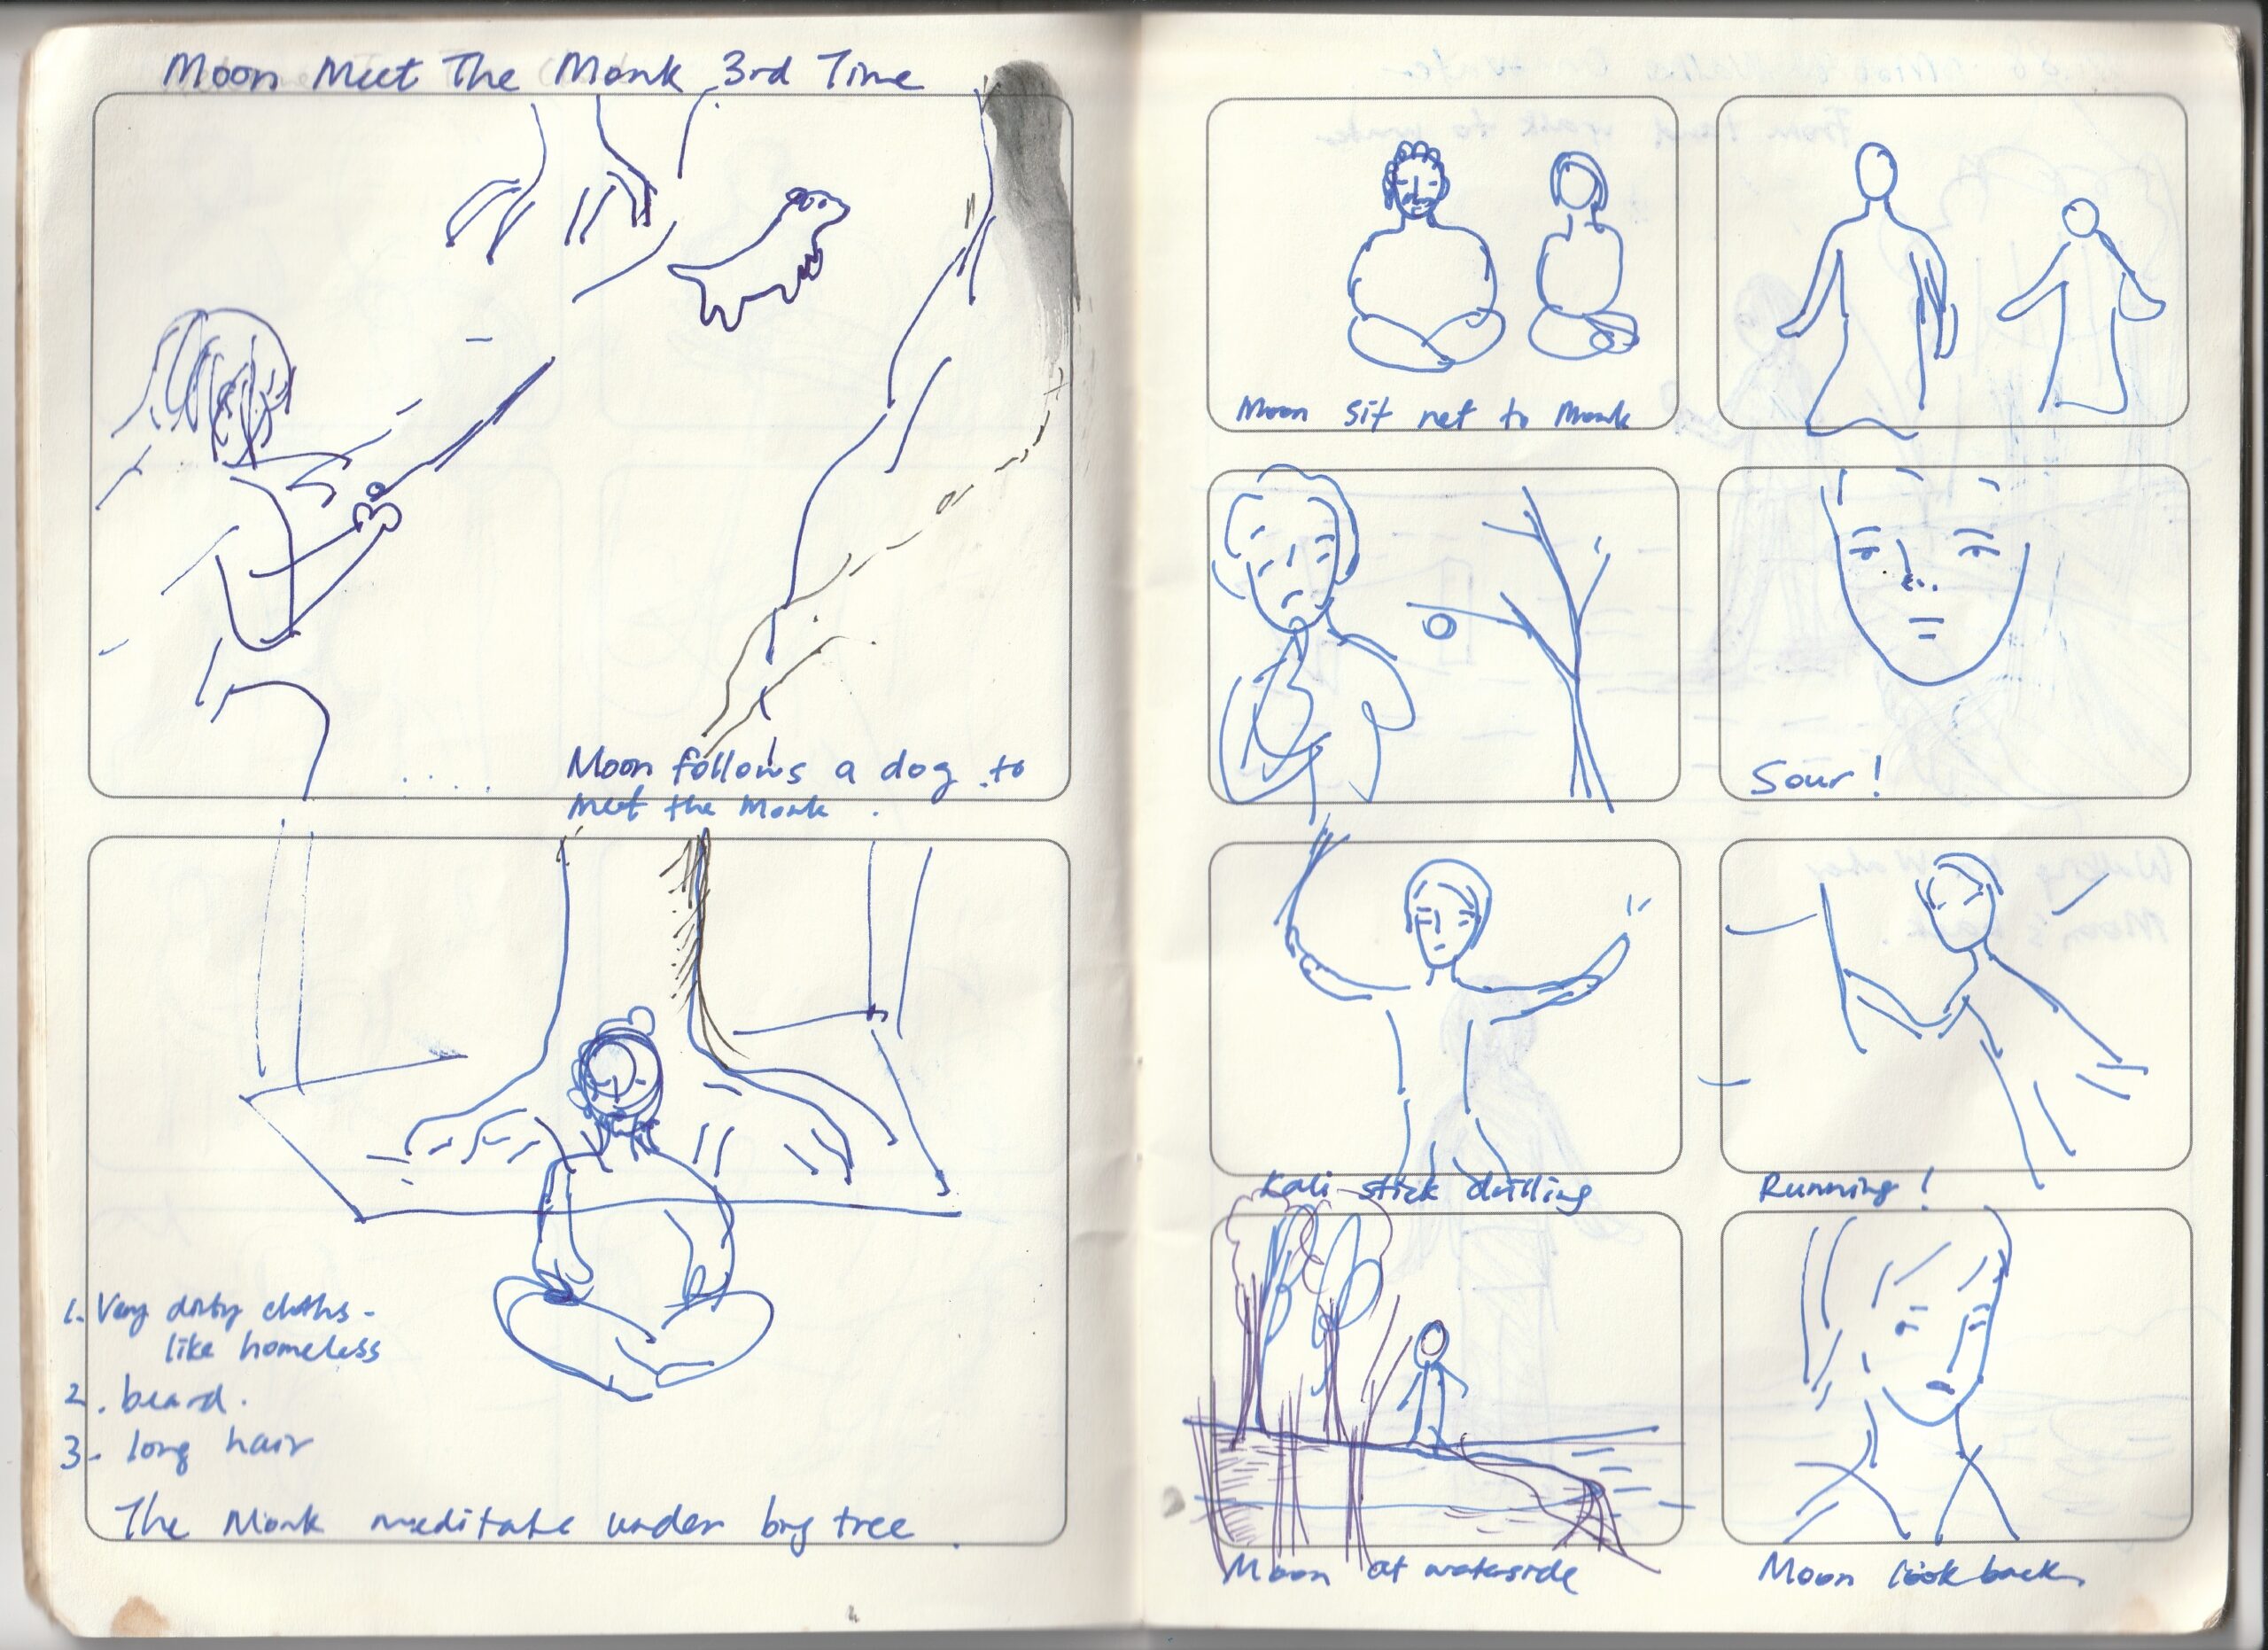 Moon Meet The Monk 3rd Time
Moon follows a dog to
meet the Monk.
1. Very dirty cloths -
like homeless
2. beard.
3. long hair
The Monk meditate under big tree
Moon sit net to Monk
Sour!
Kali stick drilling
Running!
Moon at waterside
Moon look back